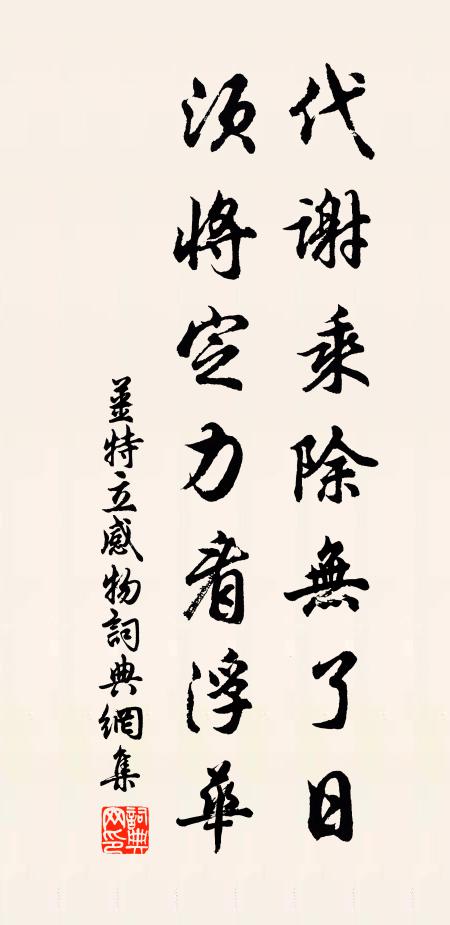 代謝乘除無了日
須將定力看浮華
姜特立感物詞典網集
詞典網印